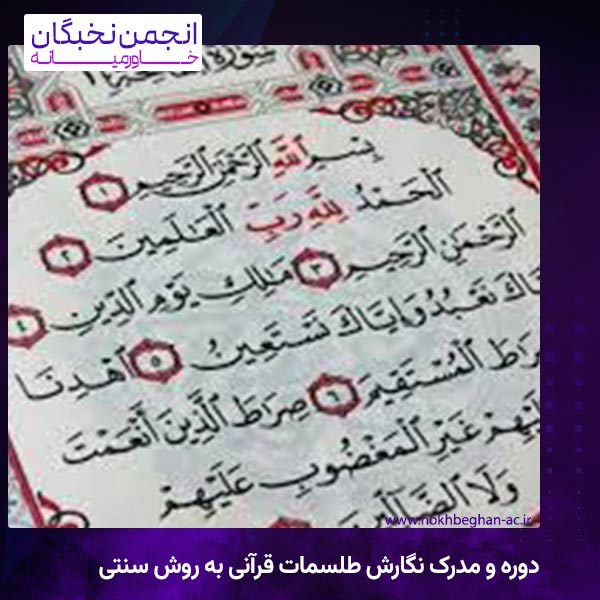 انجمن نخبگان
خاورمیانه
سورة الفاتحة
بِسْمِ اللَّهِ الرَّحْمَٰنِ الرَّحِيمِ ١
الْحَمْدُ لِلَّهِ رَبِّ الْعَالَمِينَ ٢
الرَّحْمَٰنِ الرَّحِيمِ ٣ مَالِكِ يَوْمِ الدِّينِ ٤
نَعْبُدُ وَإِيَّاكَ نَسْتَعِينُ ٥ اهْدِنَا
الْمُسْتَقِيمَ ٦ صِرَاطَ الَّذِينَ أَنْعَمْتَ
غَيْرِ الْمَغْضُوبِ عَلَيْهِمْ
وَلَا
www.nokhbeghan-ac.ir
دوره و مدرک نگارش طلسمات قرآنی به روش سنتی